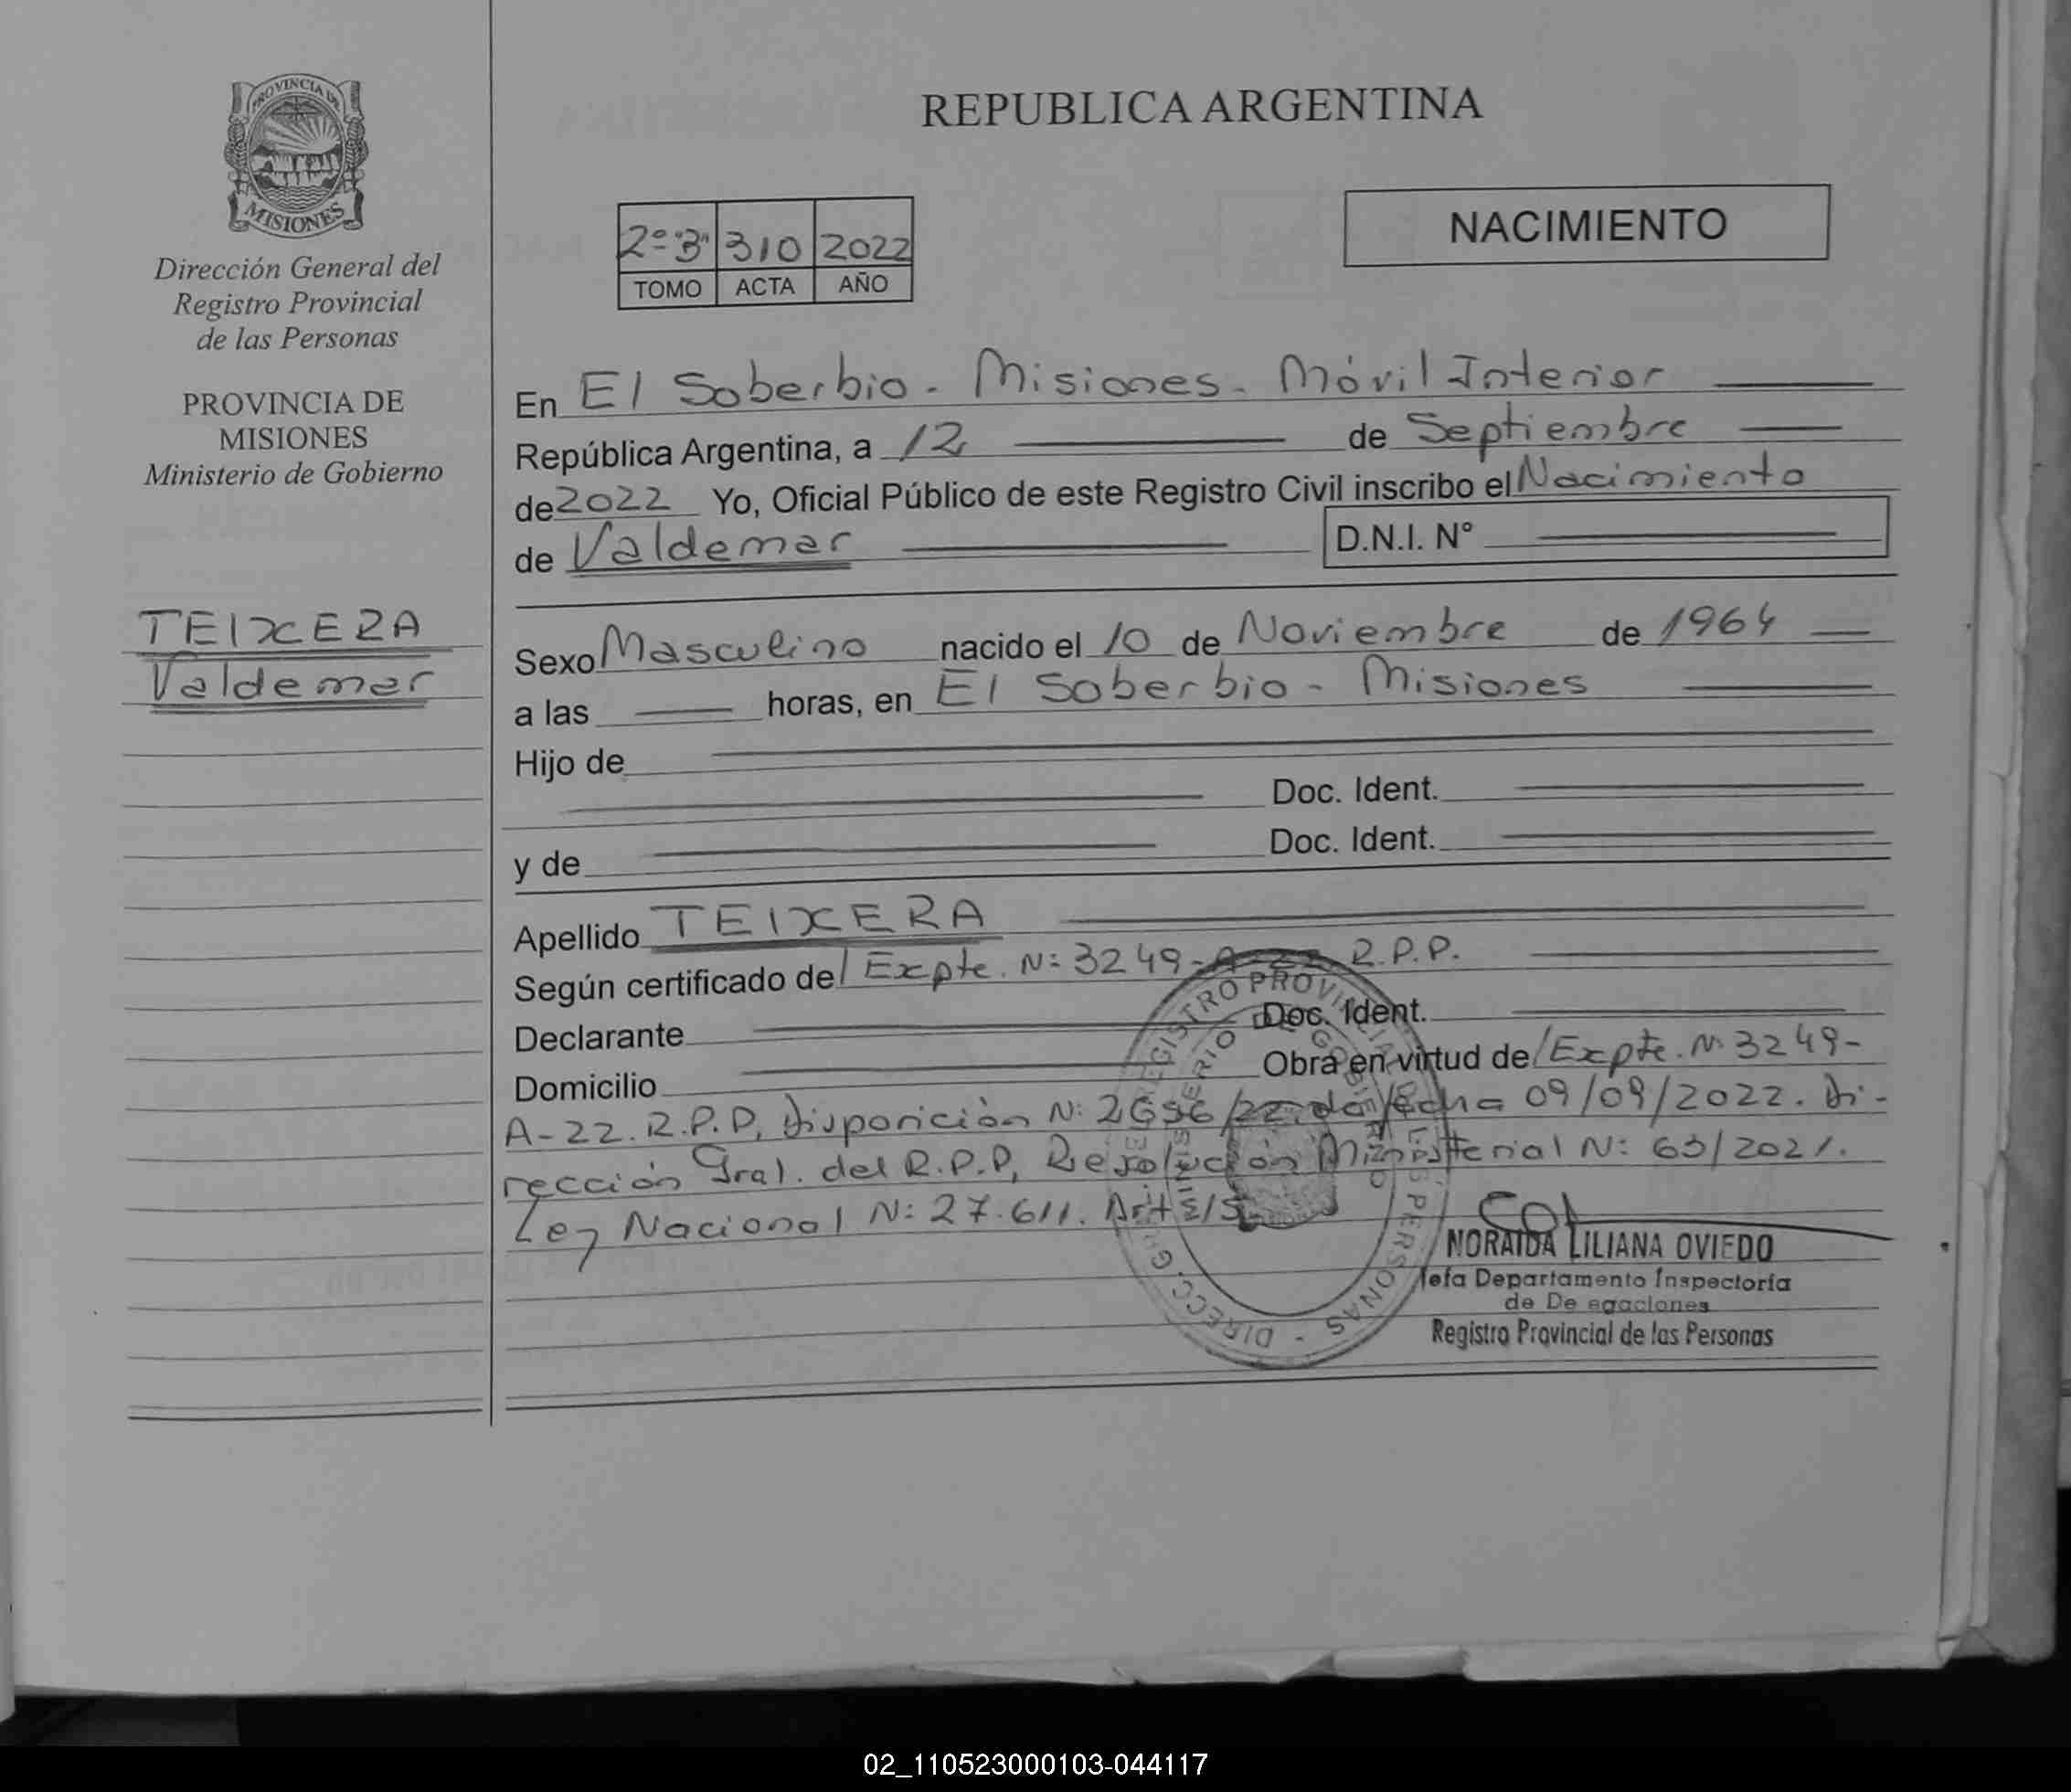 PROVINCIA DE
MISIONES
Dirección General del
Registro Provincial
de las Personas
PROVINCIA DE
MISIONES
Ministerio de Gobierno
TEIXERA
Valdemar
REPUBLICA ARGENTINA
2º "3" 310 2022
TOMO ACTA AÑO
NACIMIENTO
En El Soberbio - Misiones - Móvil Interior
República Argentina, a 12 de Septiembre
de 2022 Yo, Oficial Público de este Registro Civil inscribo el Nacimiento
de Valdemar D.N.I. N°
Sexo Masculino nacido el 10 de Noviembre de 1964
a las horas, en El Soberbio - Misiones
Hijo de
Doc. Ident.
y de Doc. Ident.
Apellido TEIXERA
Según certificado del Expte. Nº 3249-A-22 R.P.P.
Declarante Doc. Ident.
Domicilio Obra en virtud del Expte. Nº 3249-
A-22. R.P.P, Disposición Nº /22 de fecha 09/09/2022. Di-
rección Gral. del R.P.P, Resolución Ministerial Nº 63/2021.
Ley Nacional Nº 27.611. Art
NORAIDA LILIANA OVIEDO
Jefa Departamento Inspectoría
de De egaciones
Registro Provincial de las Personas
DIRECC. GRAL. DEL REGISTRO PROVINCIAL DE LAS PERSONAS -
MINISTERIO DE GOBIERNO
02_110523000103-044117